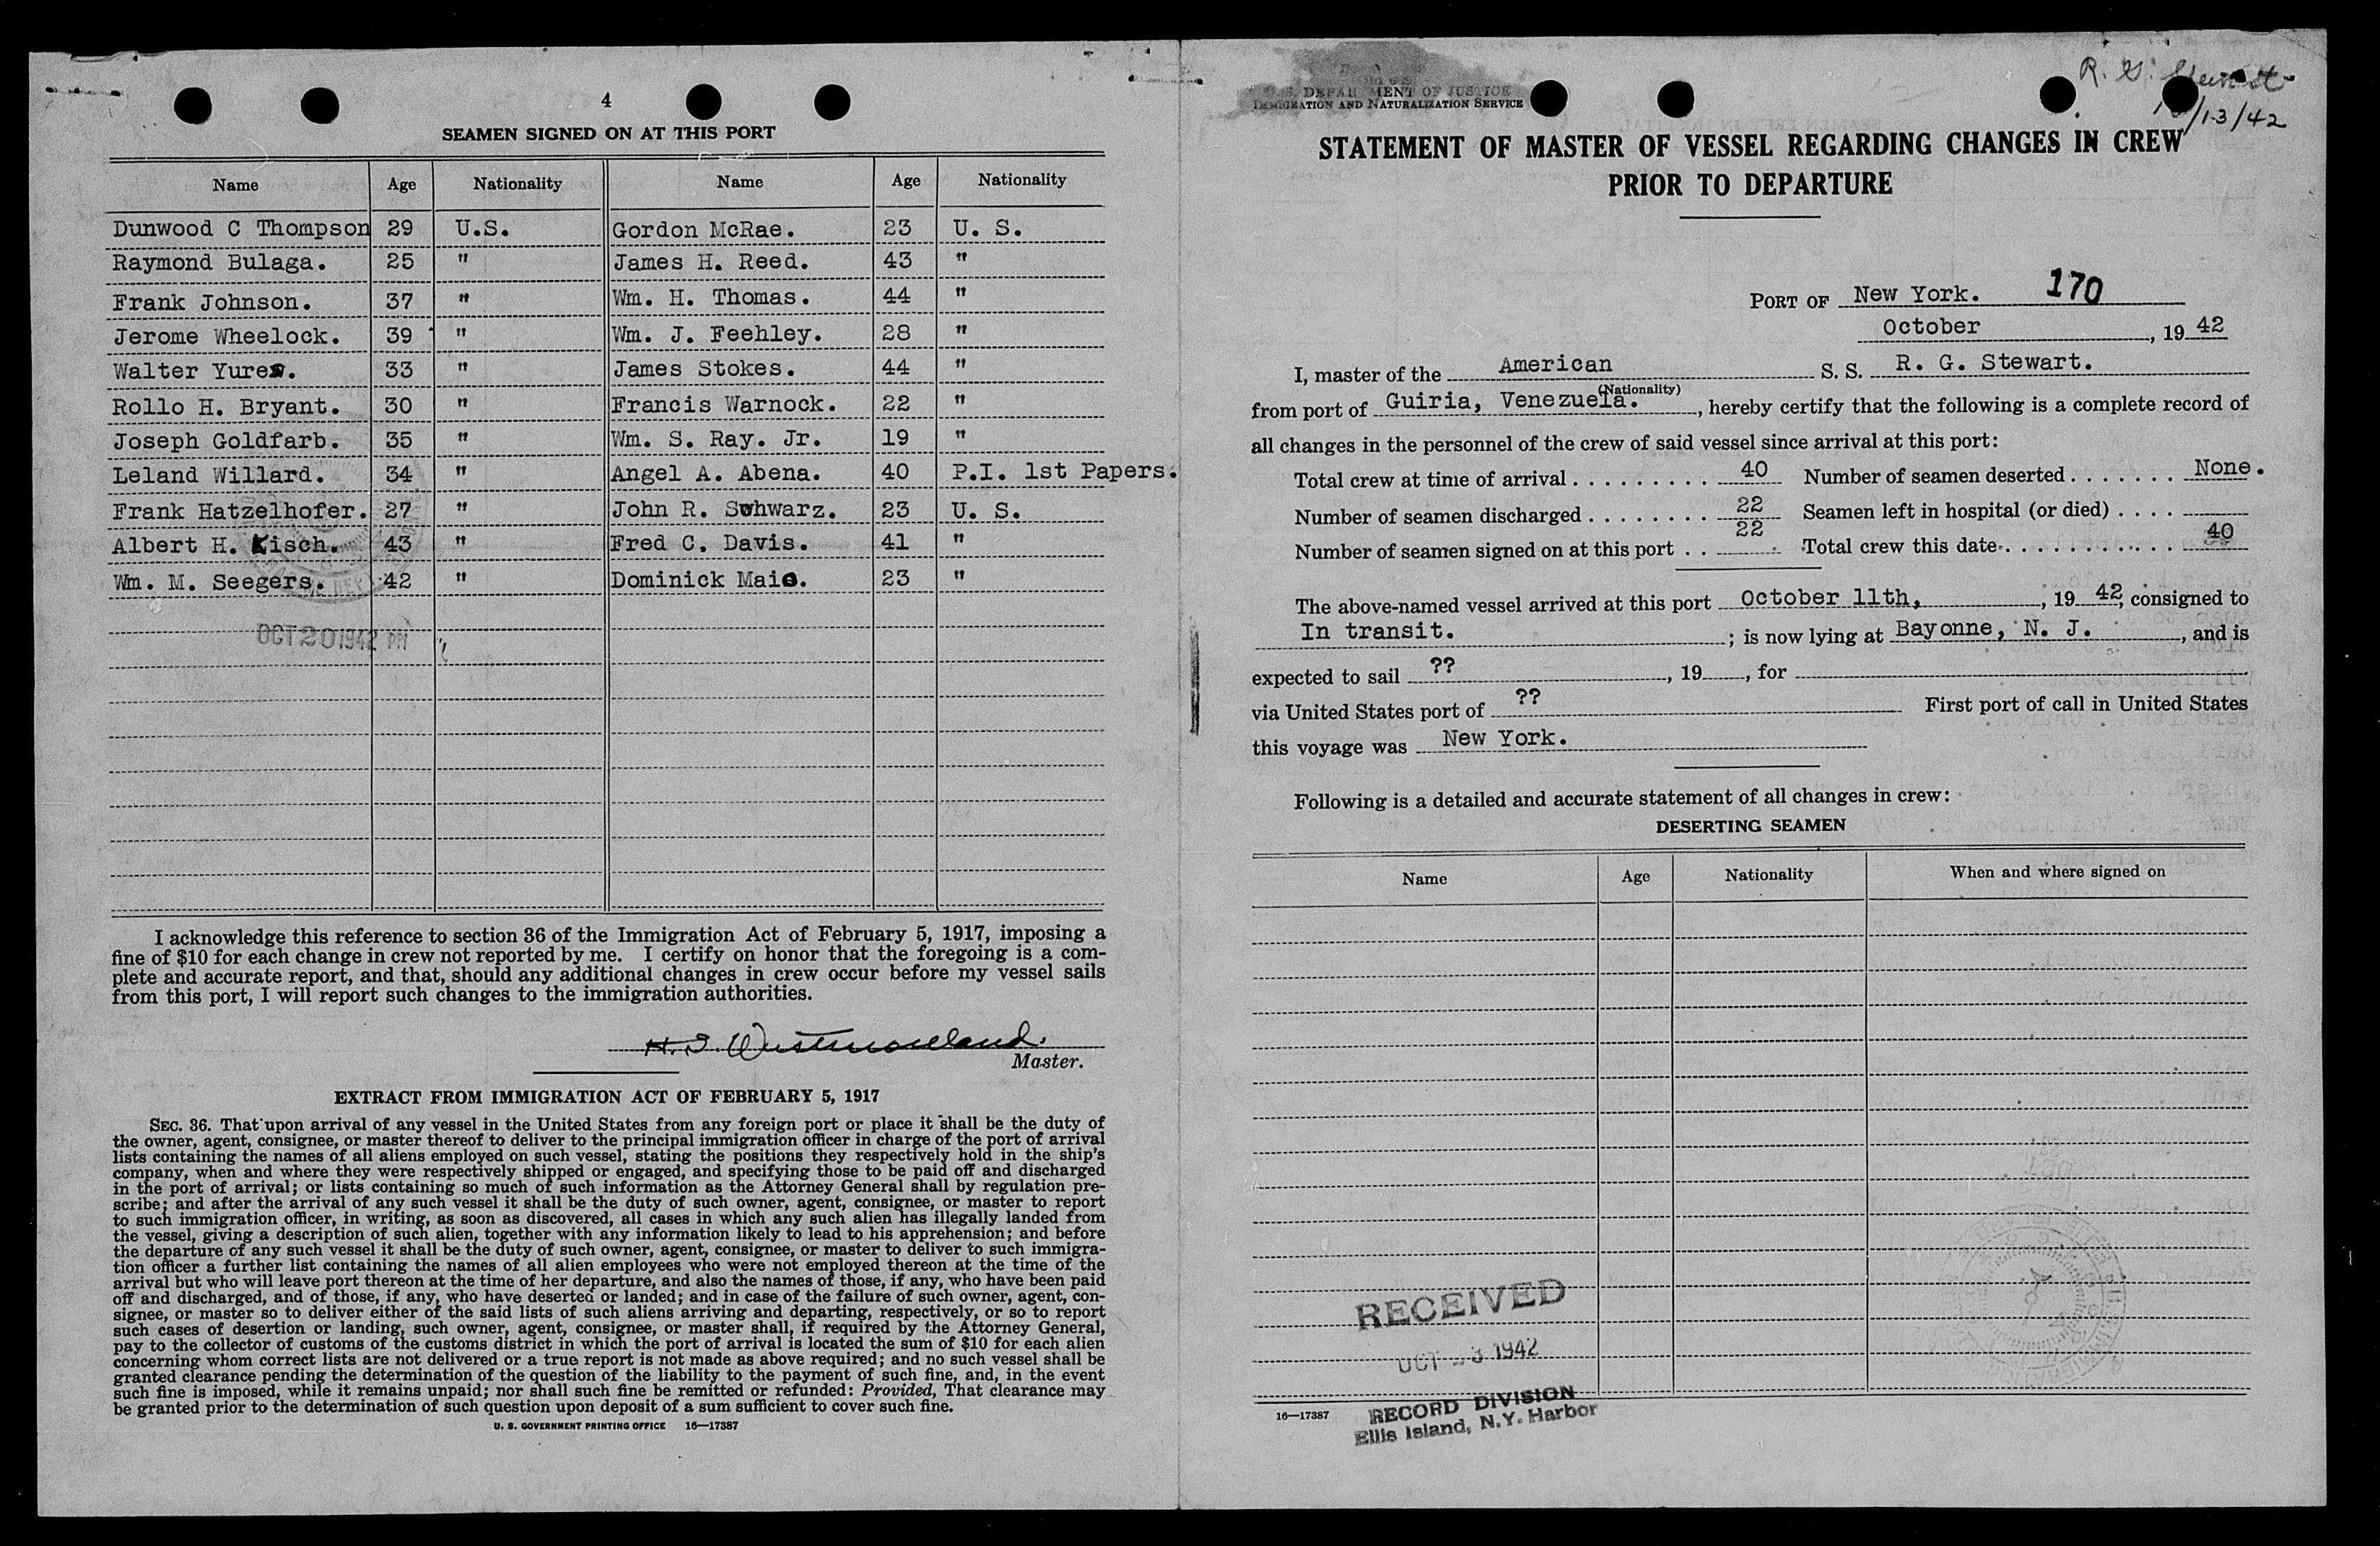 4
SEAMEN SIGNED ON AT THIS PORT
Name Age Nationality Name Age Nationality
Dunwood C Thompson 29 U.S. Gordon McRae. 23 U. S.
Raymond Bulaga. 25 " James H. Reed. 43 "
Frank Johnson. 37 " Wm. H. Thomas. 44 "
Jerome Wheelock. 39 " Wm. J. Feehley. 28 "
Walter Yures. 33 " James Stokes. 44 "
Rollo H. Bryant. 30 " Francis Warnock. 22 "
Joseph Goldfarb. 35 " Wm. S. Ray. Jr. 19 "
Leland Willard. 34 " Angel A. Abena. 40 P.I. 1st Papers.
Frank Hatzelhofer. 27 " John R. Schwarz. 23 U. S.
Albert H. Kisch. 43 " Fred C. Davis. 41 "
Wm. M. Seegers. 42 " Dominick Maio. 23 "
OCT 20 1942 PM
I acknowledge this reference to section 36 of the Immigration Act of February 5, 1917, imposing a
fine of $10 for each change in crew not reported by me. I certify on honor that the foregoing is a com-
plete and accurate report, and that, should any additional changes in crew occur before my vessel sails
from this port, I will report such changes to the immigration authorities.
Westmoreland.
Master.
EXTRACT FROM IMMIGRATION ACT OF FEBRUARY 5, 1917
SEC. 36. That upon arrival of any vessel in the United States from any foreign port or place it shall be the duty of
the owner, agent, consignee, or master thereof to deliver to the principal immigration officer in charge of the port of arrival
lists containing the names of all aliens employed on such vessel, stating the positions they respectively hold in the ship's
company, when and where they were respectively shipped or engaged, and specifying those to be paid off and discharged
in the port of arrival; or lists containing so much of such information as the Attorney General shall by regulation pre-
scribe; and after the arrival of any such vessel it shall be the duty of such owner, agent, consignee, or master to report
to such immigration officer, in writing, as soon as discovered, all cases in which any such alien has illegally landed from
the vessel, giving a description of such alien, together with any information likely to lead to his apprehension; and before
the departure of any such vessel it shall be the duty of such owner, agent, consignee, or master to deliver to such immigra-
tion officer a further list containing the names of all alien employees who were not employed thereon at the time of the
arrival but who will leave port thereon at the time of her departure, and also the names of those, if any, who have been paid
off and discharged, and of those, if any, who have deserted or landed; and in case of the failure of such owner, agent, con-
signee, or master so to deliver either of the said lists of such aliens arriving and departing, respectively, or so to report
such cases of desertion or landing, such owner, agent, consignee, or master shall, if required by the Attorney General,
pay to the collector of customs of the customs district in which the port of arrival is located the sum of $10 for each alien
concerning whom correct lists are not delivered or a true report is not made as above required; and no such vessel shall be
granted clearance pending the determination of the question of the liability to the payment of such fine, and, in the event
such fine is imposed, while it remains unpaid; nor shall such fine be remitted or refunded: Provided, That clearance may
be granted prior to the determination of such question upon deposit of a sum sufficient to cover such fine.
U. S. GOVERNMENT PRINTING OFFICE 16—17387
U. S. DEPARTMENT OF JUSTICE
IMMIGRATION AND NATURALIZATION SERVICE
/13/42
STATEMENT OF MASTER OF VESSEL REGARDING CHANGES IN CREW
PRIOR TO DEPARTURE
PORT OF New York. 170
October , 19 42
I, master of the American S. S. R. G. Stewart.
(Nationality)
from port of Guiria, Venezuela. , hereby certify that the following is a complete record of
all changes in the personnel of the crew of said vessel since arrival at this port:
Total crew at time of arrival 40 Number of seamen deserted None.
Number of seamen discharged 22 Seamen left in hospital (or died)
Number of seamen signed on at this port 22 Total crew this date 40
The above-named vessel arrived at this port October 11th, , 19 42, consigned to
In transit. ; is now lying at Bayonne, N. J. , and is
expected to sail ?? , 19 , for
via United States port of ?? First port of call in United States
this voyage was New York.
Following is a detailed and accurate statement of all changes in crew:
DESERTING SEAMEN
Name Age Nationality When and where signed on
RECEIVED
OCT 1942
16—17387
RECORD DIVISION
Ellis Island, N.Y. Harbor